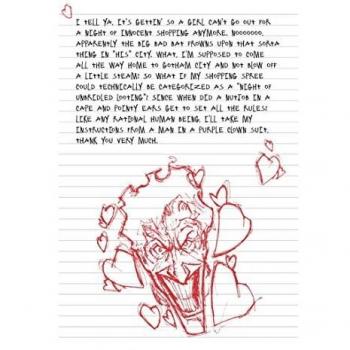 I TELL YA, IT'S GETTIN' SO A GIRL CAN'T GO OUT FOR
A NIGHT OF INNOCENT SHOPPING ANYMORE. NOOOOOOO,
APPARENTLY THE BIG BAD BAT FROWNS UPON THAT SORTA
THING IN "HIS" CITY. WHAT, I'M SUPPOSED TO COME
ALL THE WAY HOME TO GOTHAM CITY AND NOT BLOW OFF
A LITTLE STEAM? SO WHAT IF MY SHOPPING SPREE
COULD TECHNICALLY BE CATEGORIZED AS A "NIGHT OF
UNBRIDLED LOOTING"? SINCE WHEN DID A NUTJOB IN A
CAPE AND POINTY EARS GET TO SET ALL THE RULES?
LIKE ANY RATIONAL HUMAN BEING, I'LL TAKE MY
INSTRUCTIONS FROM A MAN IN A PURPLE CLOWN SUIT,
THANK YOU VERY MUCH.